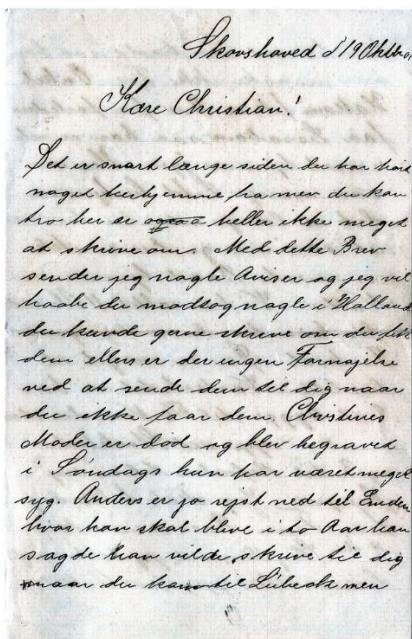 Skovshoved d 19 Oktbr
Kære Christian!
Det er snart længe siden du har hørt
noget herhjemme fra men du kan
tro her er ogsaa heller ikke meget
at skrive om. Med dette Brev
sender jeg nogle Aviser og jeg vil
haabe du modtog nogle i Holland
du kunde gerne skrive om du fik
dem ellers er der ingen Fornøjelse
ved at sende dem til dig naar
du ikke faar dem. Christines
Moder er død og blev begravet
i Søndags hun har været meget
syg. Anders er jo rejst ned til Emden
hvor han skal blive i to Aar han
sagde han vilde skrive til dig
naar du kom til Lübeck men